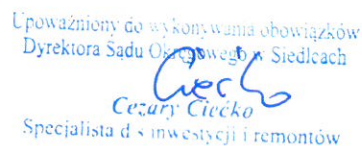 Upoważniony do wykonywania obowiązków
Dyrektora Sądu Okręgowego w Siedlcach
Ciećko
Cezary Ciećko
Specjalista d s inwestycji i remontów